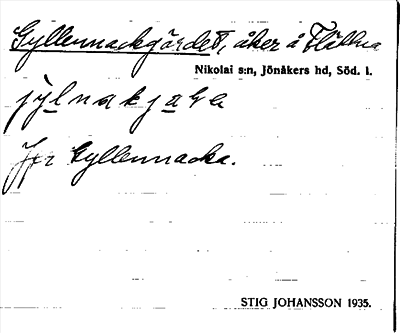 Gyllennackgärdet, åker å Flättna
Nikolai s:n, Jönåkers hd, Söd. l.
Jfr Gyllennacka.
STIG JOHANSSON 1935.